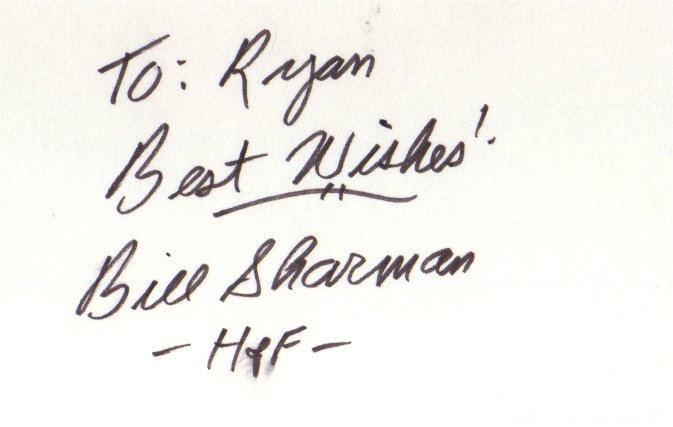 To: Ryan
Best Wishes!
Bill Sharman
- HoF -